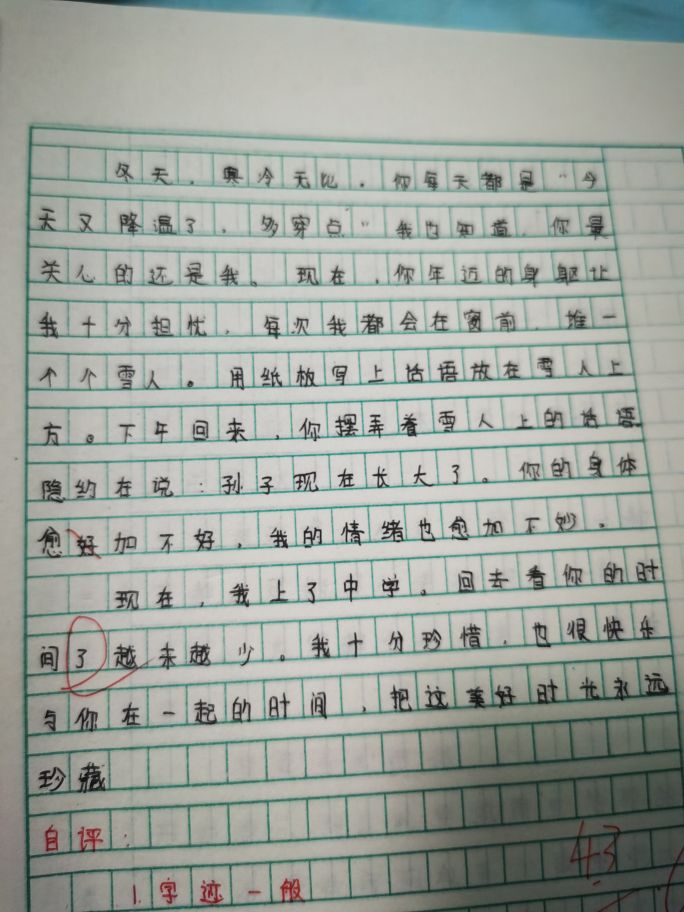 冬天，奥冷无比。你每天都是“今
天又降温了，多穿点”我也知道，你最
关心的还是我。现在，你年迈的身躯让
我十分担忧，每次我都会在窗前，堆一
个个雪人。用纸板写上话语放在雪人上
方。下午回来，你摆弄着雪人上的话语
隐约在说：孙子现在长大了。你的身体
愈好加不好，我的情绪也愈加不妙。
现在，我上了中学。回去看你的时
间了越来越少。我十分珍惜，也很快乐
与你在一起的时间，把这美好时光永远
珍藏
自评：
1.字迹一般
43